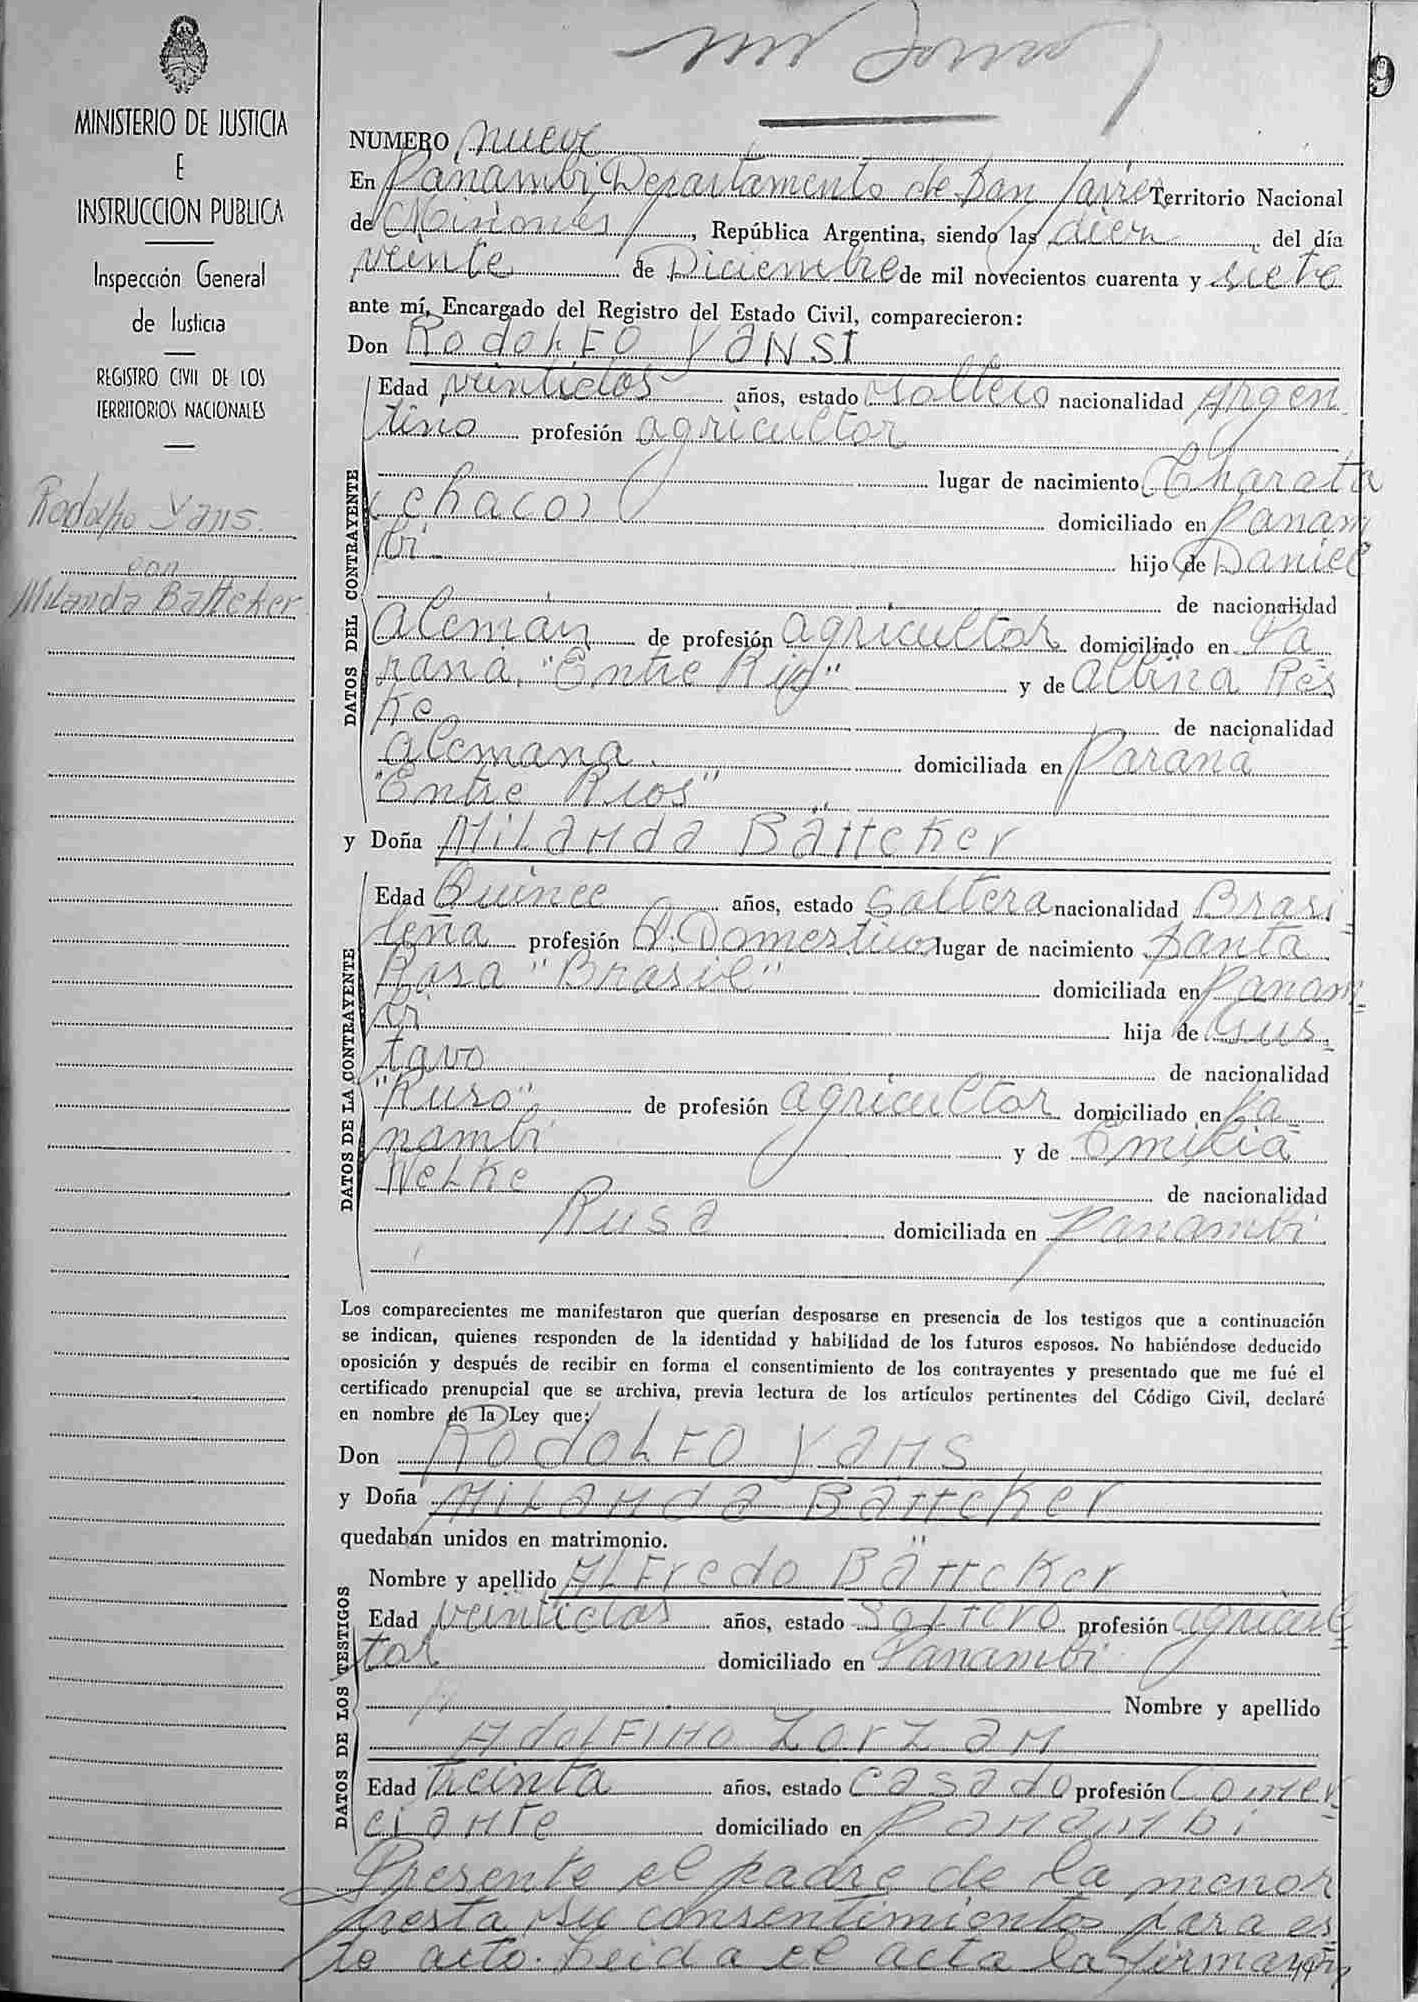 9
MINISTERIO DE JUSTICIA
E
INSTRUCCION PUBLICA
Inspección General
de Justicia
REGISTRO CIVIL DE LOS
TERRITORIOS NACIONALES
Rodolfo Yans
con
Milanda Bättcker
NUMERO nueve
En Panambi Departamento de San Javier Territorio Nacional
de Misiones, República Argentina, siendo las diez del día
veinte de Diciembre de mil novecientos cuarenta y siete
ante mí, Encargado del Registro del Estado Civil, comparecieron:
Don RodolFo YaNSI
DATOS DEL CONTRAYENTE
Edad veintidos años, estado soltero nacionalidad Argen
tino profesión agricultor
lugar de nacimiento Charata
(chaco) domiciliado en Panam
bi- hijo de Daniel
de nacionalidad
Alemán de profesión agricultor domiciliado en Pa
raná "Entre Rios" y de Albina Res
ke de nacionalidad
alemana. domiciliada en Paraná
"Entre Rios"
y Doña Milanda Bättcker
DATOS DE LA CONTRAYENTE
Edad Quince años, estado Saltera nacionalidad Brasi
leña profesión Q. Domesticos lugar de nacimiento Santa
Rasa "Brasil" domiciliada en Panam
bi hija de Gus
tavo de nacionalidad
"Ruso" de profesión agricultor domiciliado en Pa
nambi y de Emilia
Nelke de nacionalidad
Rusa domiciliada en Panambi
Los comparecientes me manifestaron que querían desposarse en presencia de los testigos que a continuación
se indican, quienes responden de la identidad y habilidad de los futuros esposos. No habiéndose deducido
oposición y después de recibir en forma el consentimiento de los contrayentes y presentado que me fué el
certificado prenupcial que se archiva, previa lectura de los artículos pertinentes del Código Civil, declaré
en nombre de la Ley que:
Don RodolFo Yans
y Doña Milanda Bättcker
quedaban unidos en matrimonio.
DATOS DE LOS TESTIGOS
Nombre y apellido AlFredo Bättcker
Edad veintidos años, estado Soltero profesión agricul
tor domiciliado en Panambi
Nombre y apellido
AdolFino Zorzan
Edad treinta años, estado casado profesión Comer
ciante domiciliado en Panambi
Presente el padre de la menor
presta su consentimiento para es
te acto. Leida el acta la firman